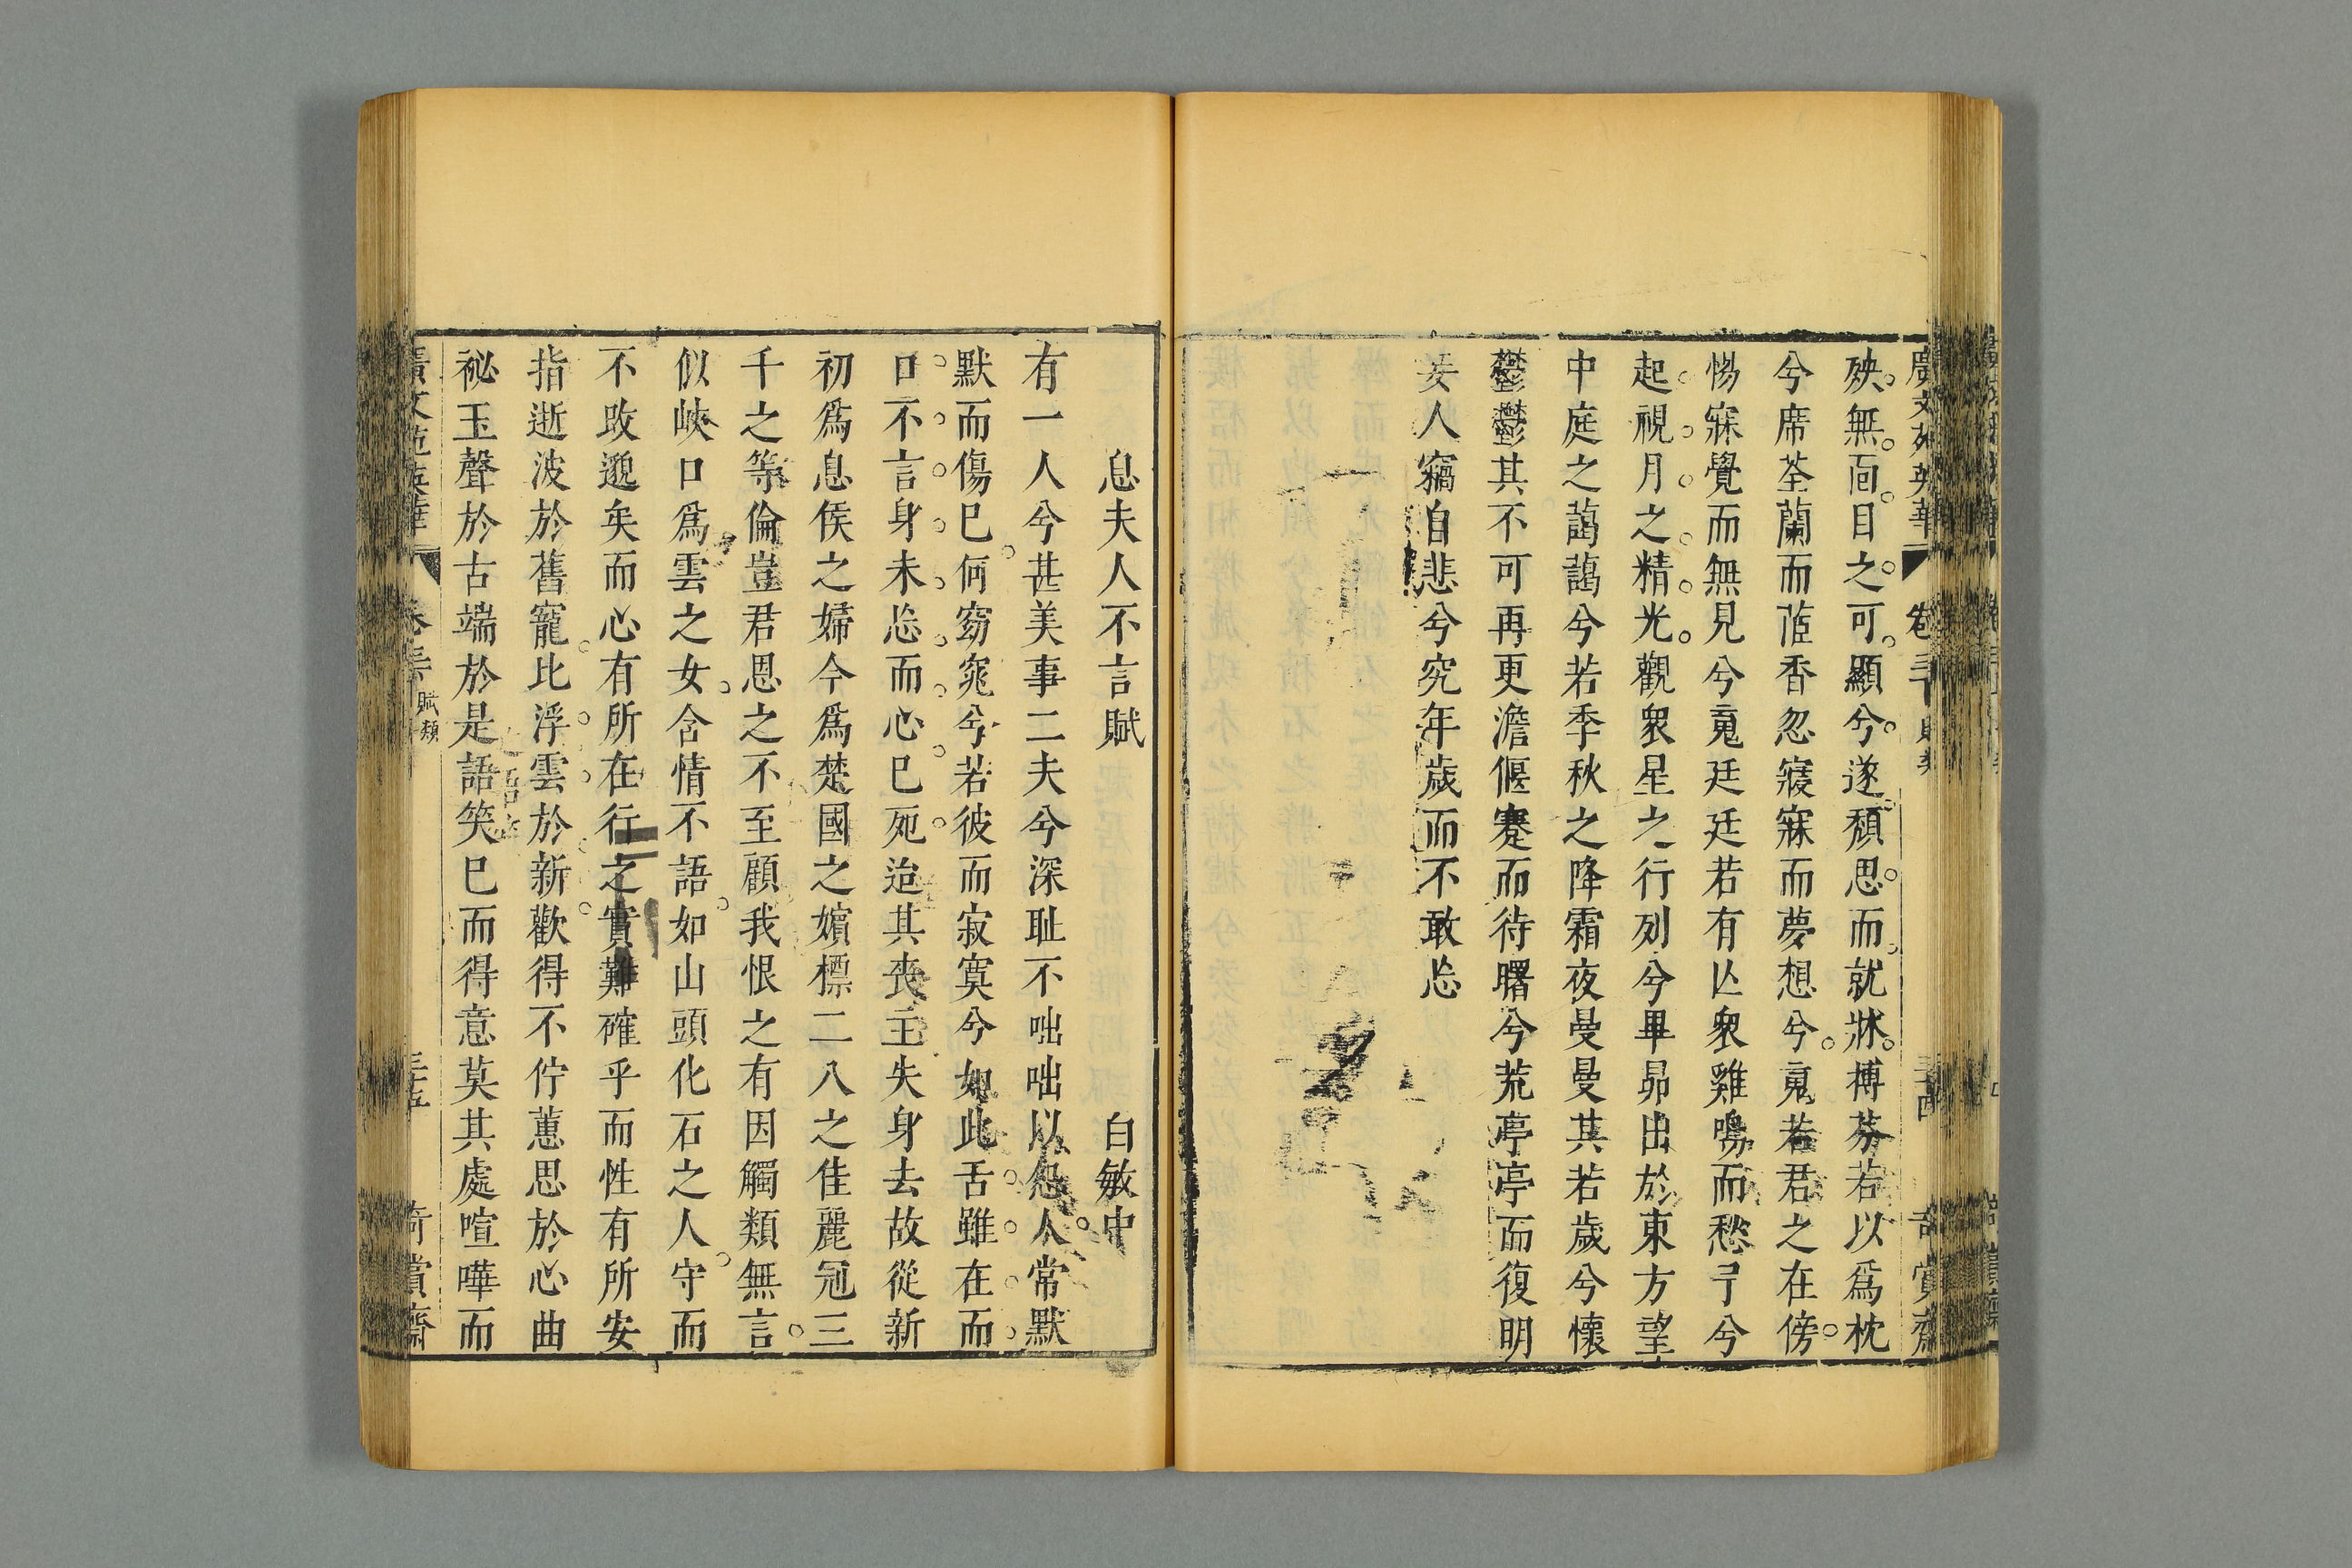 殃無面目之可顯兮遂頹思而就牀摶芬若以爲枕
兮席荃蘭而茝香忽寢寐而夢想兮䰟若君之在傍
惕寐覺而無見兮䰟廷廷若有亾衆雞鳴而愁予兮
起視月之精光觀衆星之行列兮畢昴出於東方望
中庭之藹藹兮若季秋之降霜夜曼曼其若歲兮懷
鬱鬱其不可再更澹偃蹇而待曙兮荒亭亭而復明
妾人竊自悲兮究年歲而不敢忘
息夫人不言賦
白敏中
有一人兮甚美事二夫兮深耻不咄咄以怨人常默
默而傷巳何窈窕兮若彼而寂寞兮如此舌雖在而
口不言身未忘而心巳死迨其喪主失身去故從新
初爲息侯之婦今爲楚國之嬪標二八之佳麗冠三
千之等倫豈君恩之不至顧我恨之有因觸類無言
似峽口爲雲之女含情不語如山頭化石之人守而
不改邈矣而心有所在行之實難確乎而性有所安
指逝波於舊寵比浮雲於新歡得不佇蕙思於心曲
祕玉聲於古端於是語笑巳而得意莫其處喧嘩而
廣文苑英華
賦類
奇賞齋